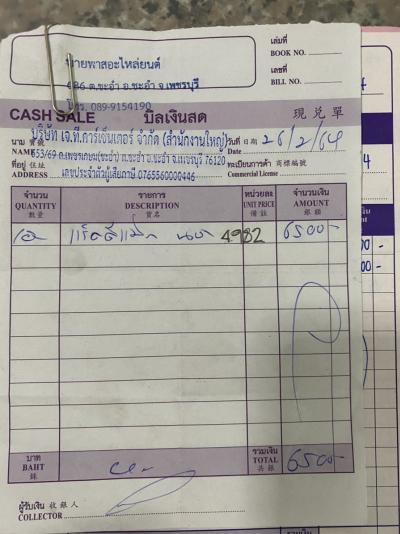 นายพาสอะไหล่ยนต์
486 ต.ชะอำ อ.ชะอำ จ.เพชรบุรี
โทร. 089-9154190
เล่มที่
BOOK NO.
เลขที่
BILL NO.
CASH SALE บิลเงินสด 現兌單
บริษัท เจ.ที.คาร์เซ็นเตอร์ จำกัด (สำนักงานใหญ่)
นาม 寶號
NAME 553/69 ถ.เพชรเกษม(ชะอำ) ต.ชะอำ อ.ชะอำ จ.เพชรบุรี 76120
วันที่ 日期 26/2/64
Date
ที่อยู่ 住址
ADDRESS เลขประจำตัวผู้เสียภาษี 0765560000446
ทะเบียนการค้า 商標編號
Commercial License
จำนวน รายการ หน่วยละ จำนวนเงิน
QUANTITY DESCRIPTION UNIT PRICE AMOUNT
數量 貨名 備註 銀額
4982 6500-
บาท รวมเงิน
BAHT TOTAL 6500-
銖 共銀
ผู้รับเงิน 收銀人
COLLECTOR